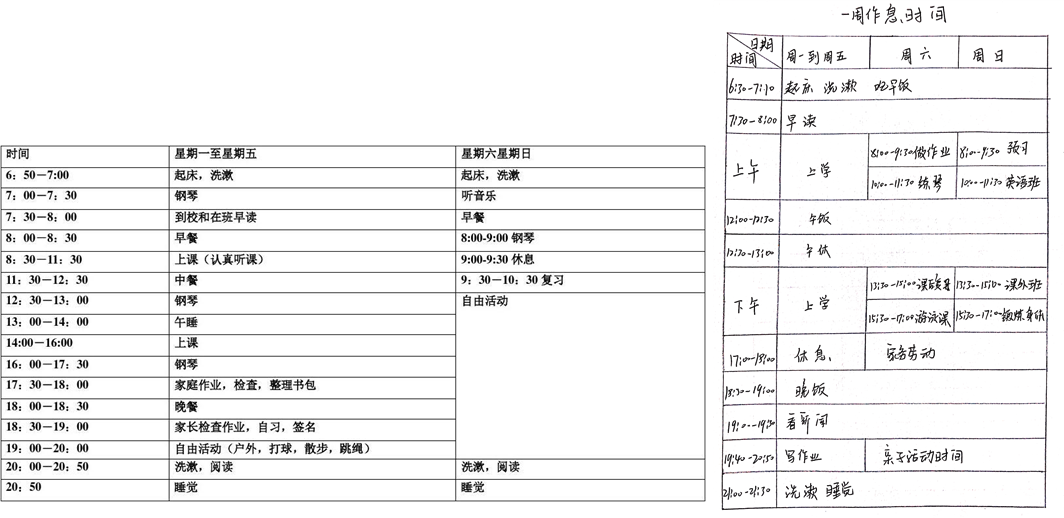 时间 星期一至星期五 星期六星期日
6：50-7:00 起床，洗漱 起床，洗漱
7：00—7：30 钢琴 听音乐
7：30—8：00 到校和在班早读 早餐
8：00—8：30 早餐 8:00-9:00 钢琴
8：30—11：30 上课（认真听课） 9:00-9:30 休息
11：30—12：30 中餐 9：30—10：30 复习
12：30—13：00 钢琴 自由活动
13：00—14：00 午睡
14:00—16:00 上课
16：00—17：30 钢琴
17：30—18：00 家庭作业，检查，整理书包
18：00—18：30 晚餐
18：30—19：00 家长检查作业，自习，签名
19：00—20：00 自由活动（户外，打球，散步，跳绳）
20：00—20：50 洗漱，阅读 洗漱，阅读
20：50 睡觉 睡觉
一周作息时间
日期
时间 周一到周五 周六 周日
6:30-7:10 起床 洗漱 吃早饭
7:30-8:00 早读
8:00-9:30做作业 8:00-9:30 预习
上午 上学
10:00-11:30 练琴 10:00-11:30 英语班
12:00-12:30 午饭
12:30-13:00 午休
13:30-15:00 13:30-15:00 课外班
下午 上学
15:30-17:00游泳课 15:30-17:00锻炼身体
17:00-18:00 休息 家务劳动
18:30-19:00 晚饭
19:00-19:30 看新闻
19:40-20:50 写作业 亲子活动时间
21:00-21:30 洗漱 睡觉